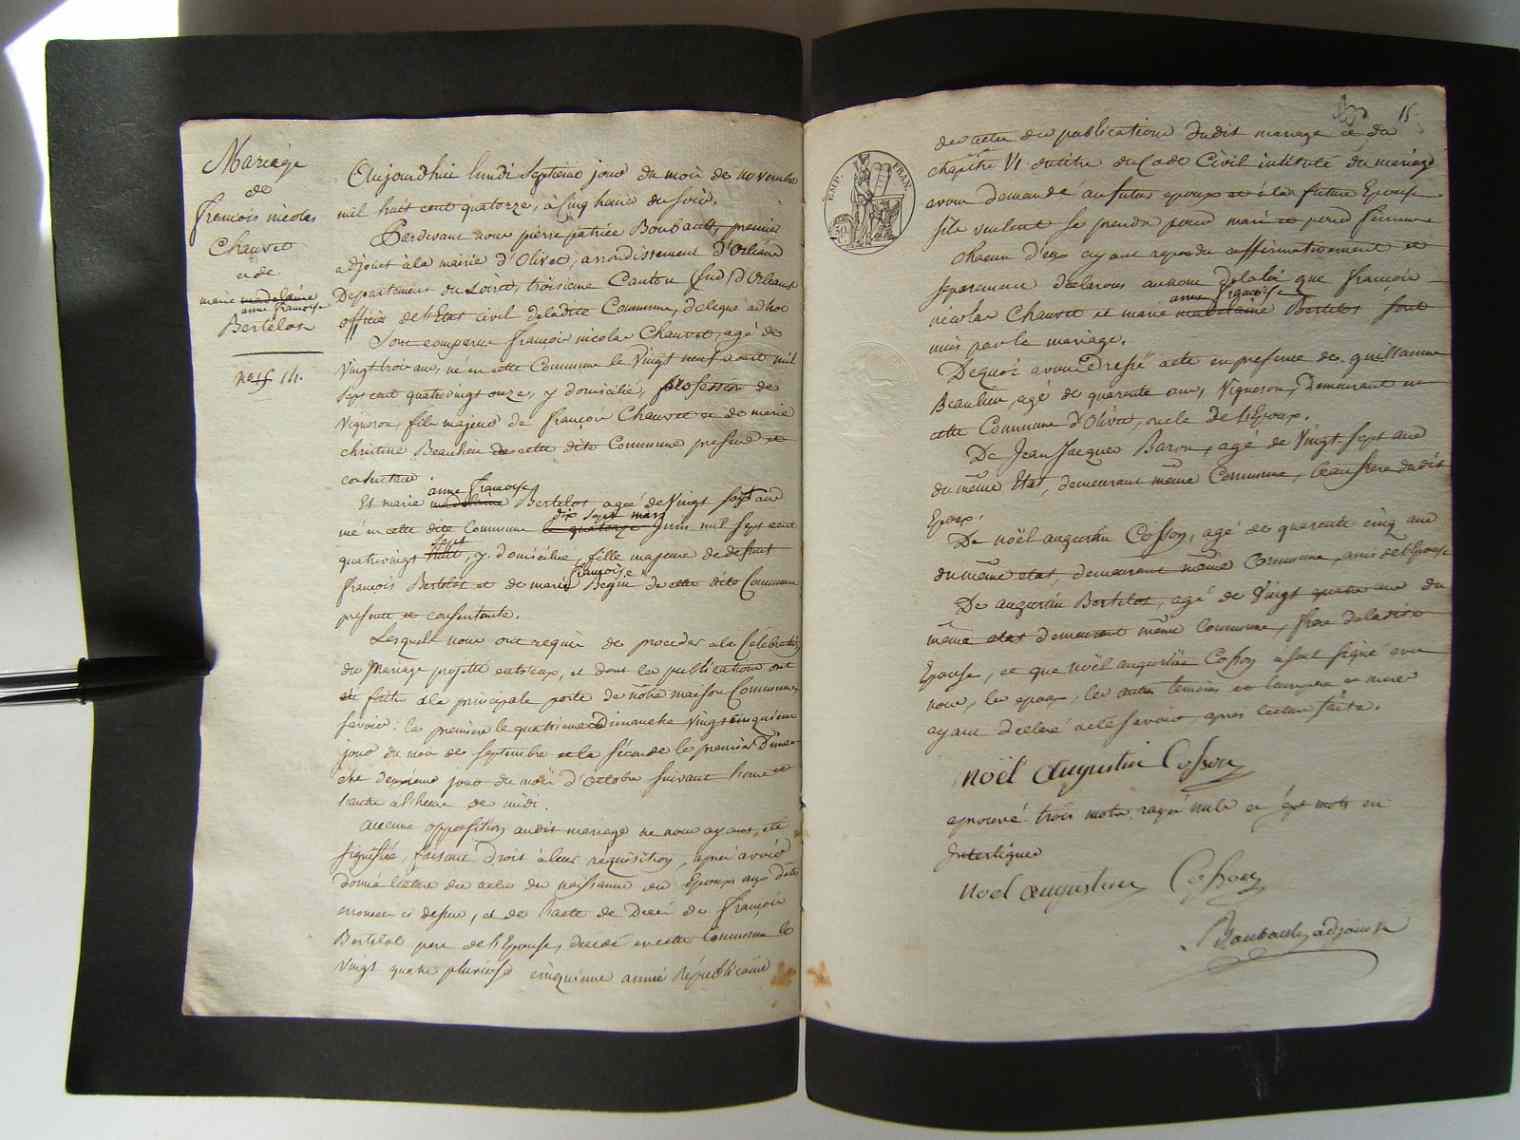 Mariage
de
françois nicolas
Chauvet
et de
marie madelaine
anne françoise
Bertelot
no 15 14.
Aujourdhui lundi Septieme jour du mois de novembre
mil huit cent quatorze, à Cinq heures du soir.
Pardevant nous pierre patrice Boubault, premier
adjoint à la mairie d'Olivet, arrondissement d'Orléans
Departement du Loiret, troisieme Canton (sud) d'Orleans
officier de l'Etat civil de ladite Commune, delegué ad hoc
Sont comparus françois nicolas Chauvet, agé de
Vingt trois ans, né en cette Commune le Vingt neuf aout mil
sept cent quatrevingt onze, y domicilié, profession de
Vigneron, fils majeur de françois Chauvet et de marie
christine Beaulieu de cette dite Commune present et
consentant
Et marie madelaine anne françoise Bertelot agée de Vingt sept ans
née en cette dite Commune le quatorze dix sept mars juin mil sept cent
quatrevingt huit sept, y domiciliée, fille majeure de defunt
françois Bertelot et de marie françoise Begin de cette dite Commune
presente et consentante.
Lesquels nous ont requis de proceder a la Célébration
du Mariage projetté entr'eux, et dont les publications ont
été faites a la principale porte de notre maison Commune
savoir: la premiere le quatrieme Dimanche Vingt cinquieme
jour du mois de Septembre et la seconde le premier Diman
che deuxieme jour du mois d'Octobre suivant l'une et
l'autre a l'heure de midi.
aucune opposition audit mariage ne nous ayant été
signifiée, faisant Droit à leur réquisition, après avoir
donné lecture des actes de naissance des Epoux aux dates
énoncées ci dessus, et de l'acte de Décès de françois
Bertelot pere de l'Epouse, décédé en cette Commune le
Vingt quatre pluviose cinquieme année républicaine
15
EMP. FRAN.
des actes de publications dudit mariage et du
chapitre VI du titre du Code Civil intitulé du mariage
avons demandé au futur epoux et à la future Epouse
s'ils veulent se prendre pour mari et pour femme
chacun d'eux ayant repondu affirmativement et
separement declarons au nom de la loi que françois
nicolas Chauvet et marie madelaine anne françoise Bertelot sont
unis par le mariage.
De quoi avons Dressé acte en presence de guillaume
Beaulieu agé de quarante ans, Vigneron, Demeurant en
cette Commune d'Olivet, oncle de l'Epoux.
De Jean Jacques Baron, agé de Vingt sept ans
du même Etat, demeurant même Commune, beau frere dudit
Epoux.
De noël augustin Cosson, agé de quarante cinq ans
du même etat, demeurant même Commune, ami de l'Epouse
De augustin Bertelot, agé de Vingt quatre ans du
même etat demeurant même Commune, frere de ladite
Epouse, et que noël augustin Cosson a seul signé avec
nous, les epoux, les autres temoins et leurs pere et meres
ayant declaré ne le savoir, après lecture faite.
Noël augustin Cosson
aprouvé trois mots rayés nuls et sept mots en
Interligne
Noël augustin Cosson
Boubault adjoint